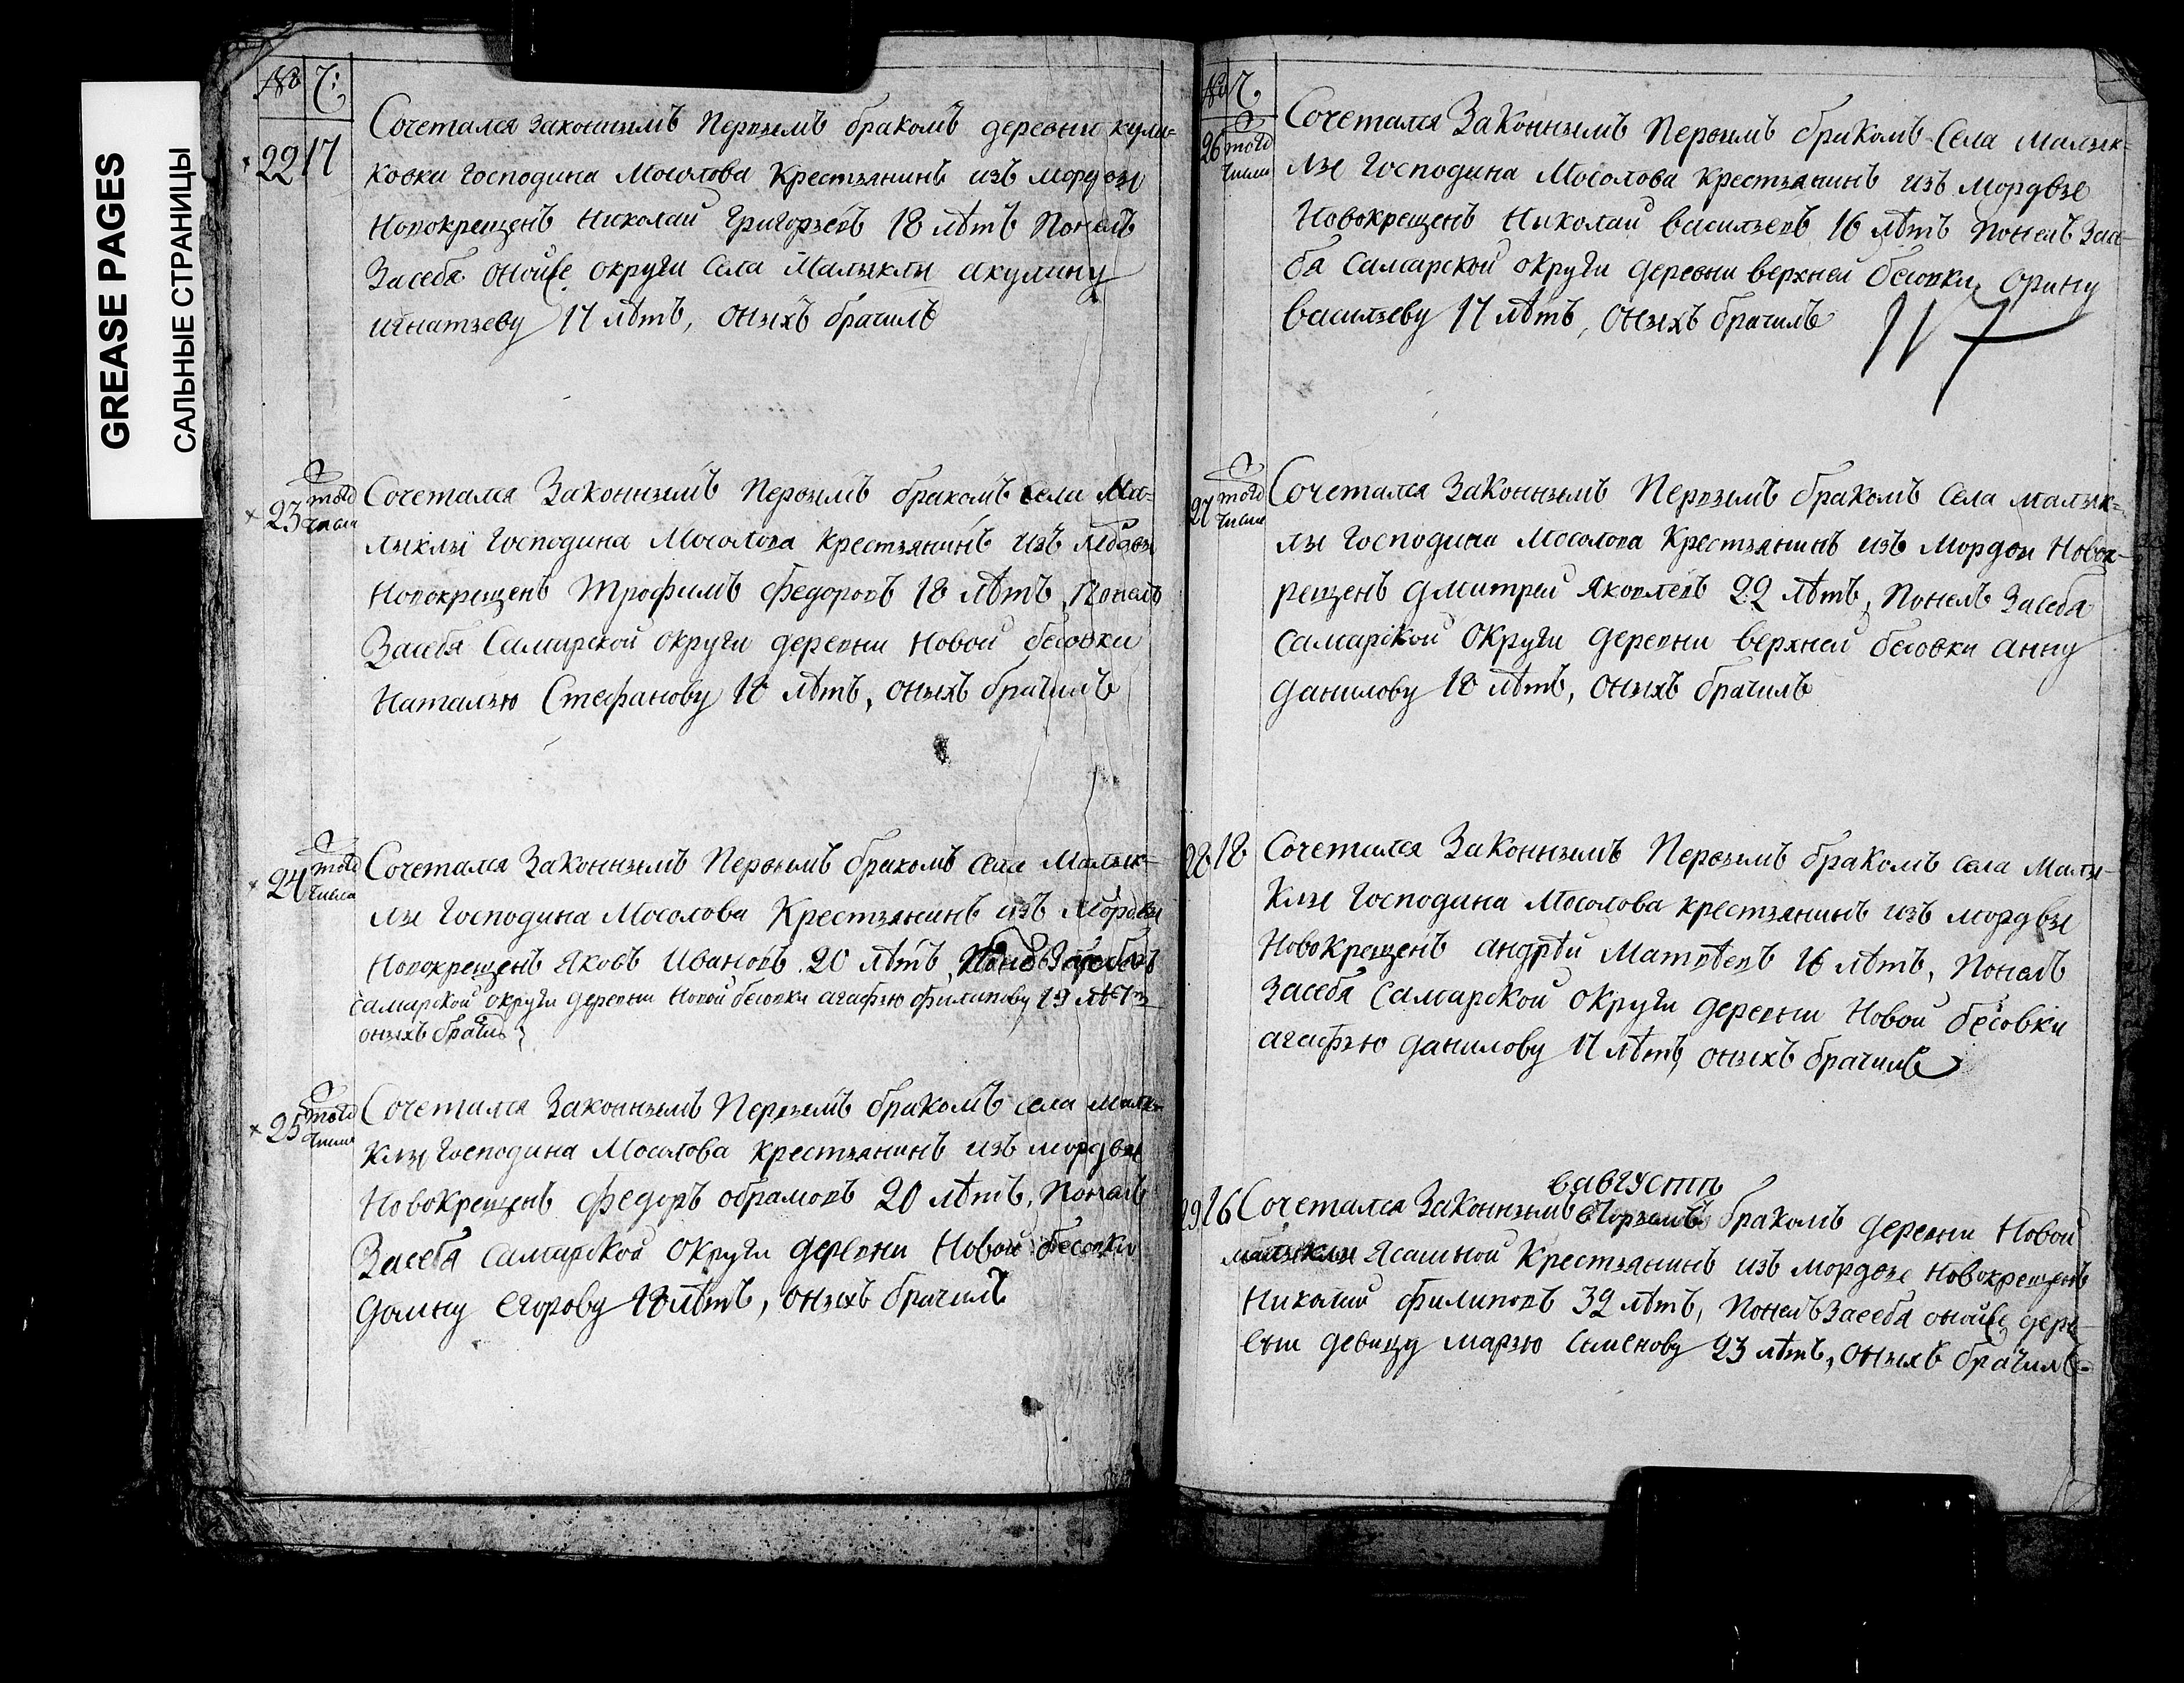 GREASE PAGES
САЛЬНЫЕ СТРАНИЦЫ
№ Ч:
22 17
Сочетался законнымъ первымъ бракомъ деревни кули=
ковки господина Мосолова крестьянинъ изъ мордвы
новокрещенъ николай григорьевъ 18 лѣтъ понелъ
засебя онойже округи села Малыклы акулину
игнатьеву 17 лѣтъ, оныхъ брачилъ
23 того числа
Сочетался законнымъ первымъ бракомъ села Ма=
лыклы господина Мосолова крестьянинъ изъ мордвы
новокрещенъ трофимъ федоровъ 18 лѣтъ, понелъ
засебя самарской округи деревни новой бесовки
наталью Стефанову 18 лѣтъ, оныхъ брачилъ
24 того числа
Сочетался законнымъ первымъ бракомъ села Малык=
лы господина Мосолова крестьянинъ изъ мордвы
новокрещенъ яковъ ивановъ 20 лѣтъ понелъ засебя
самарской округи деревни новой бесовки агафью филипову 19 лѣтъ
оныхъ брачилъ
25 того числа
Сочетался законнымъ первымъ бракомъ села малы=
клы господина Мосолова крестьянинъ изъ мордвы
новокрещенъ федоръ обрамовъ 20 лѣтъ, понелъ
засебя самарской округи деревни новой бесовки
домну егорову 18 лѣтъ, оныхъ брачилъ
№ Ч
26 того числа
Сочетался законнымъ первымъ бракомъ села малык=
лы господина Мосолова крестьянинъ изъ мордвы
новокрещенъ николай васильевъ 16 лѣтъ понелъ засе=
бя самарской округи деревни верхней бесовки, орину
васильеву 17 лѣтъ, оныхъ брачилъ
117
27 того числа
Сочетался законнымъ первымъ бракомъ села малык=
лы господина Мосолова крестьянинъ изъ мордвы новок=
рещенъ дмитрей яковлевъ 22 лѣтъ, понелъ засебя
самарской округи деревни верхней бесовки анну
данилову 18 лѣтъ, оныхъ брачилъ
28 18
Сочетался законнымъ первымъ бракомъ села малы=
клы господина Мосолова крестьянинъ изъ мордвы
новокрещенъ андрѣй матвѣевъ 16 лѣтъ, понелъ
засебя самарской округи деревни новой бесовки
агафью данилову 17 лѣтъ, оныхъ брачилъ
вавгустѣ
29 16 Сочетался законнымъ вторымъ бракомъ деревни новой
малыклы ясашной крестьянинъ изъ мордвы новокрещенъ
николай филиповъ 32 лѣтъ, понелъ засебя онойже дере=
вни девицу марью семенову 23 лѣтъ, оныхъ брачилъ=